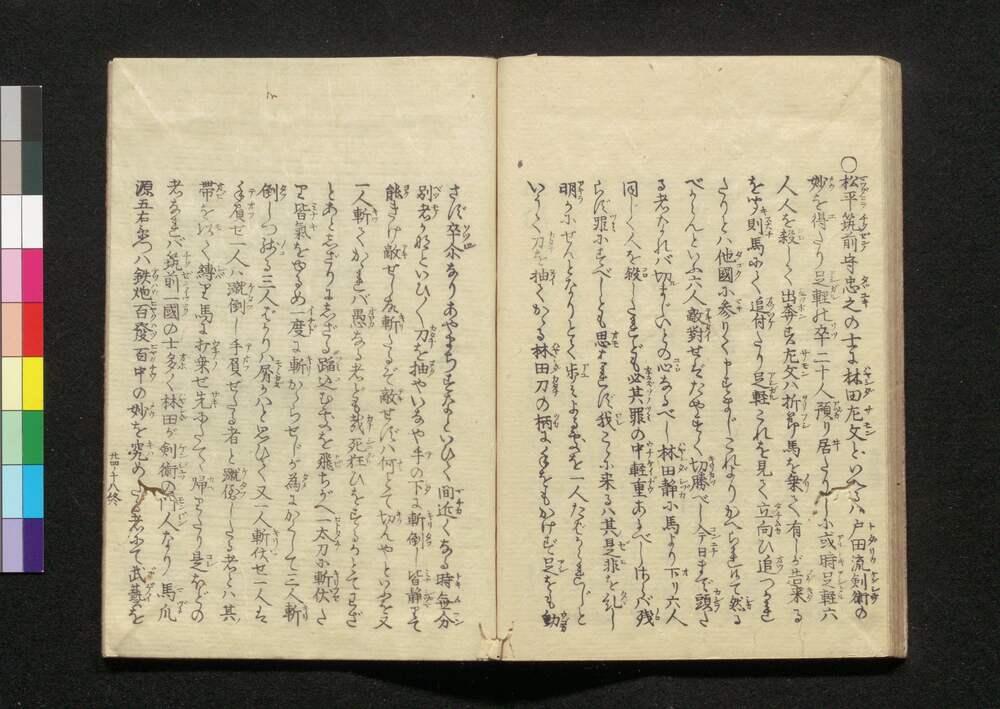 ○松平筑前守忠之の士に林田左文といへるハ戸田流剣術の
妙を得たり足軽の卒二十人預り居たりしに或時足軽六
人人を殺して出奔す左文ハ折節馬を乗て有しが告来る
を聞則馬にて追付たり足軽これを見て立向ひ追つかれ
たりとハ他國に参りて申まじこれよりかへられ候て然る
べからんといふ六人敵對せばたやすく切勝べし今日まで頭た
る者なれバ切まじいとの心なるべし林田静に馬より下り六人
同じく人を殺したれども必其罪の中軽重あるべしさらバ残
らず罪にすべしとも思はれず我こゝに来るハ其是非を糺し
明かにせんとなりとく歩みよるを一人たばかられじと
いふて刀を抽てかゝる林田刀の柄に手をもかけず足をも動
さず卒尓なりあやまちすなといひて間近くなる時毎分
別者かなといひて刀を抽やいなや手の下に斬倒し皆静にて
能きけ敵せし故斬たるぞ敵せずバ何とて切んやといふを又
一人斬てかかれバ愚なる者ども哉死狂ひをするかとてわざ
とあとしざりにしざる踏込む処を飛ちがへ一太刀に斬伏た
り皆氣をゆるめ一度に斬かゝらせじが為にかくして三人斬
倒しつ残る三人ばかりハ屑ハと思ひて又一人斬伏せ一人ハ
手負せ一人ハ蹴倒し手負せたる者と蹴倒したる者とハ其
帯を以て縛り馬に打乗せ先にたてゝ帰りたり是ほどの
者なれバ筑前一國の士多く林田が剣術の門人なり馬爪
源五右衛門ハ鉄炮百發百中の妙を究めたる者にて武藝を
廿四ノ十八終